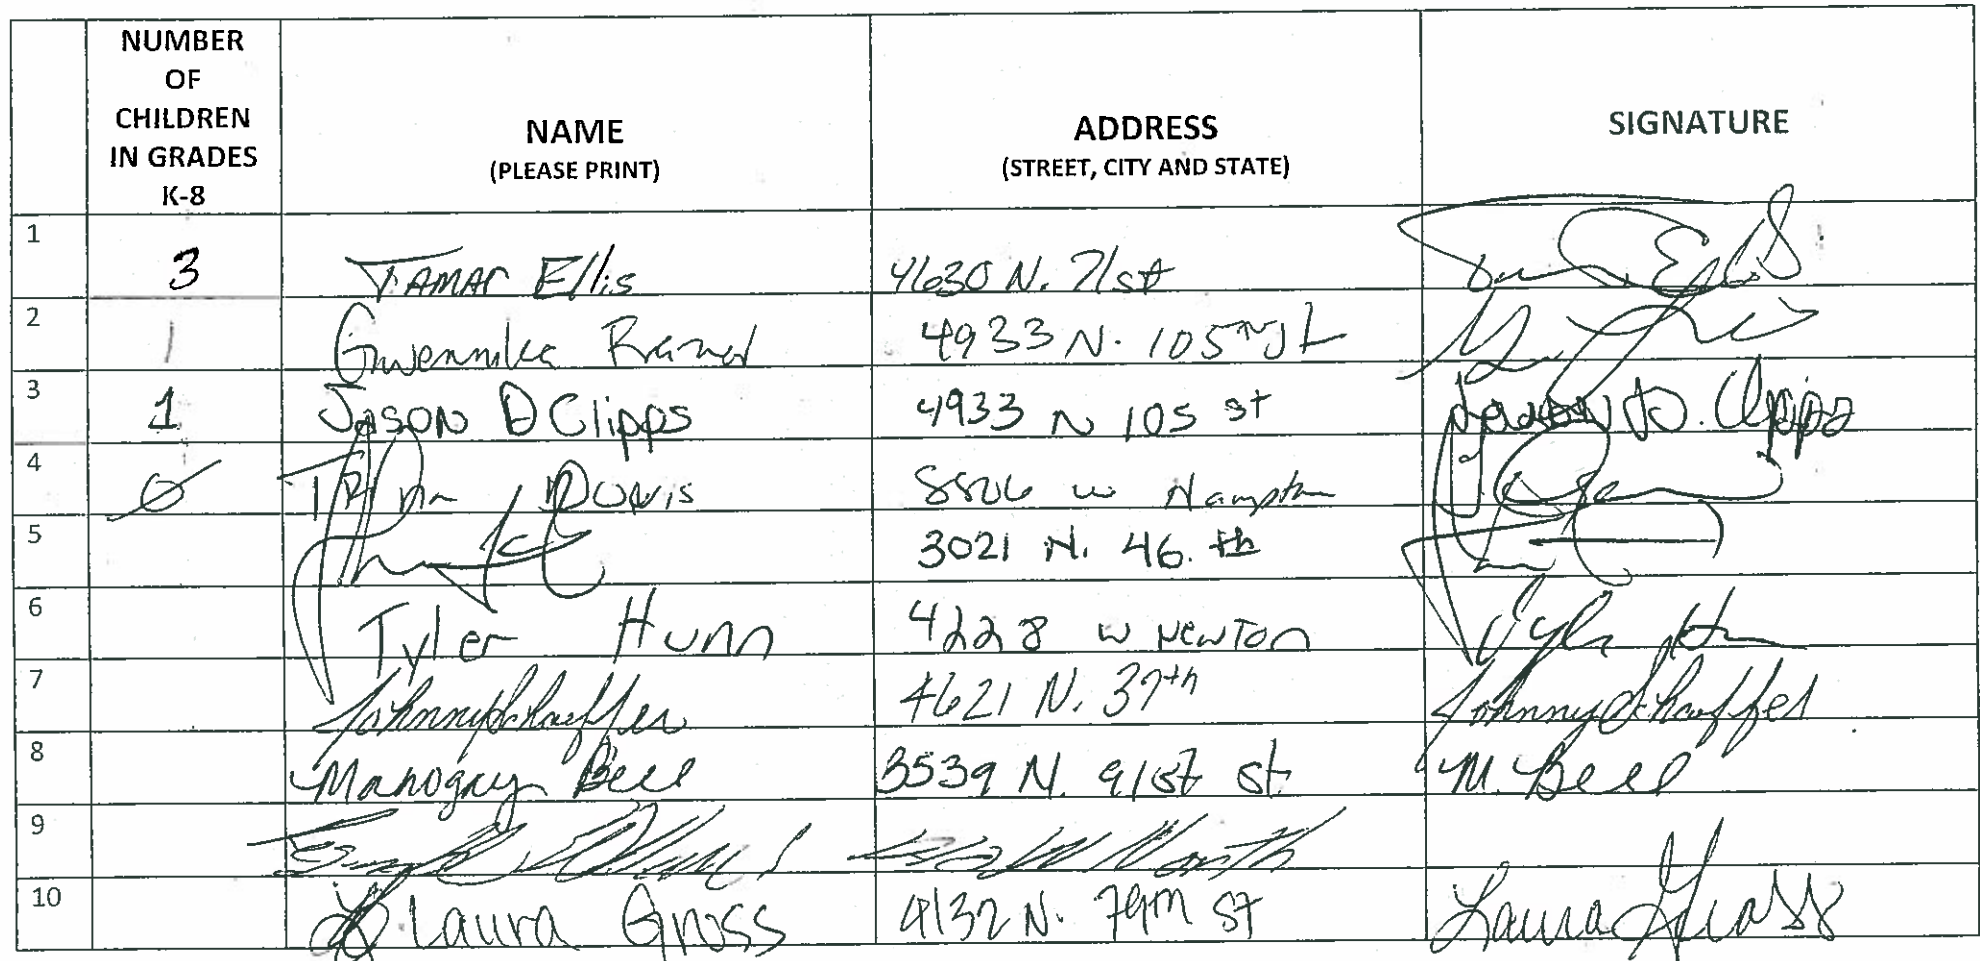 NUMBER OF CHILDREN IN GRADES K-8
NAME (PLEASE PRINT)
ADDRESS (STREET, CITY AND STATE)
SIGNATURE
1 3 Tamar Ellis 4630 N. 71st
2 1 Gwennika 4933 N. 105
3 1 Jason D Clipps 4933 N 105 st Jason D. Clipps
4 0 Davis W Hampton
5 3021 N. 46.th
6 Tyler Hunn 4228 W Newton Tyler
7 Johnny Schaeffer 4621 N. 37th Johnny Schaeffer
8 Mahogany Bell 3539 N. 91st St. M. Bell
9 North
10 Laura Gross 4132 N. 79th St Laura Gross